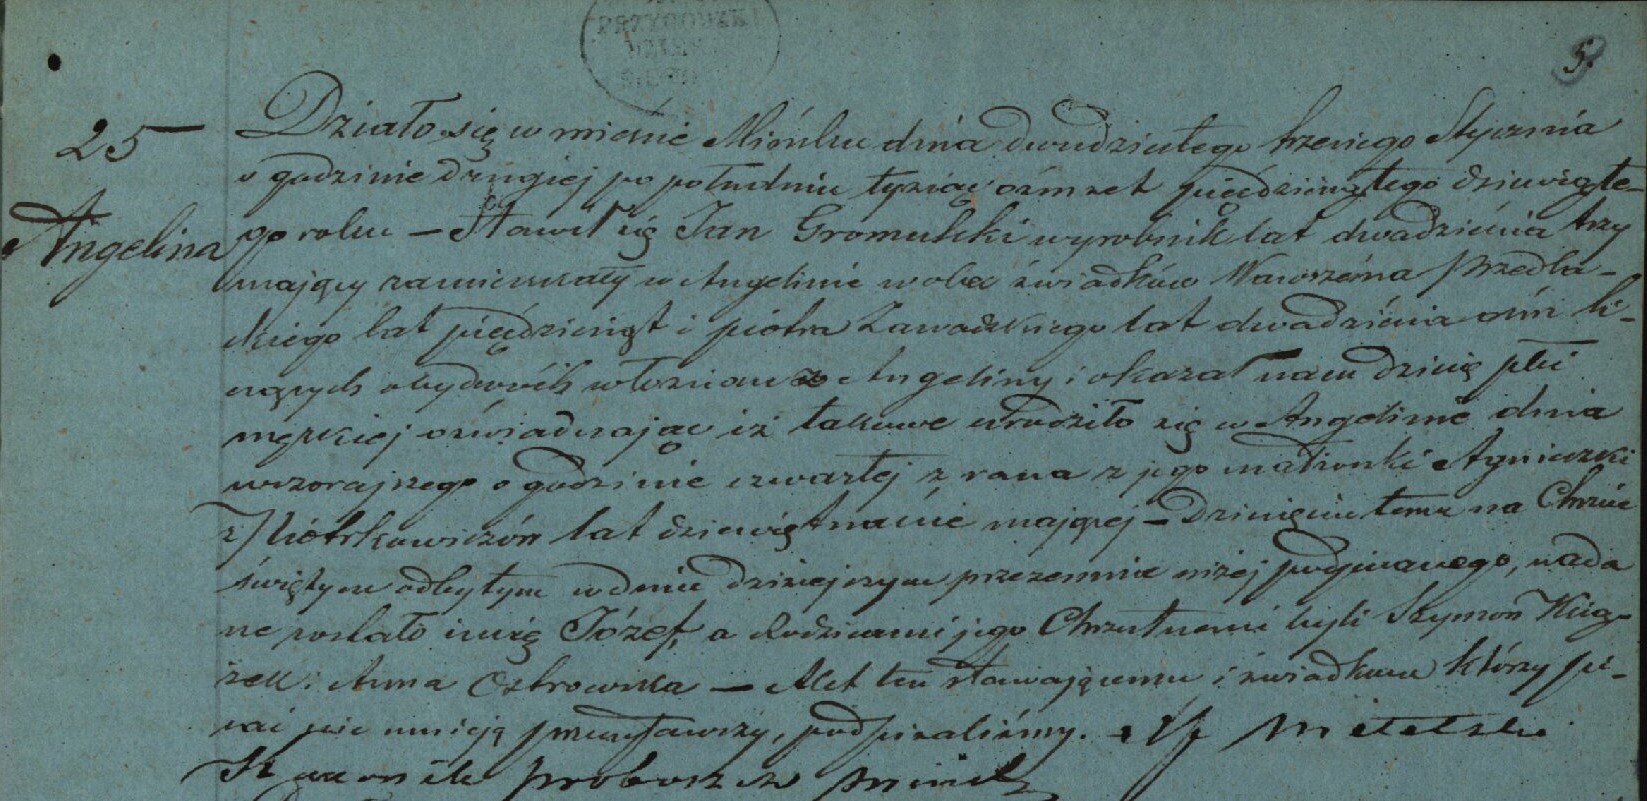 PRZYGODZK
5.
25
Angelina
Działo się w mieście Mińsku dnia dwudziestego trzeciego Stycznia
o godzinie drugiej po południu tysiąc ośmset pięćdziesiątego dziewięte-
go roku — Stawił się Jan Gromulski wyrobnik lat dwadzieścia trzy
mający zamieszkały w Angelinie w obec świadków Wawrzeńca
skiego lat pięćdziesiąt i Piotra Zawadzkiego lat dwadzieścia ośm li-
czących obydwóch włościan z Angeliny i okazał nam dziecię płci
męzkiej oświadczając iż takowe urodziło się w Angelinie dnia
wczorajszego o godzinie czwartej z rana z jego małżonki Agnieszki
z Piotrkowiczów lat dziewiętnaście mającej — Dziecięciu temu na Chrzcie
świętym odbytym w dniu dzisiejszym przezemnie niżej podpisanego, nada
ne zostało imię Józef, a Rodzicami jego Chrzestnemi byli Szymon
i Anna Ostrowska — Akt ten stawającemu i świadkom którzy pi-
sać nie umieją przeczytawszy, podpisaliśmy.
proboszcz